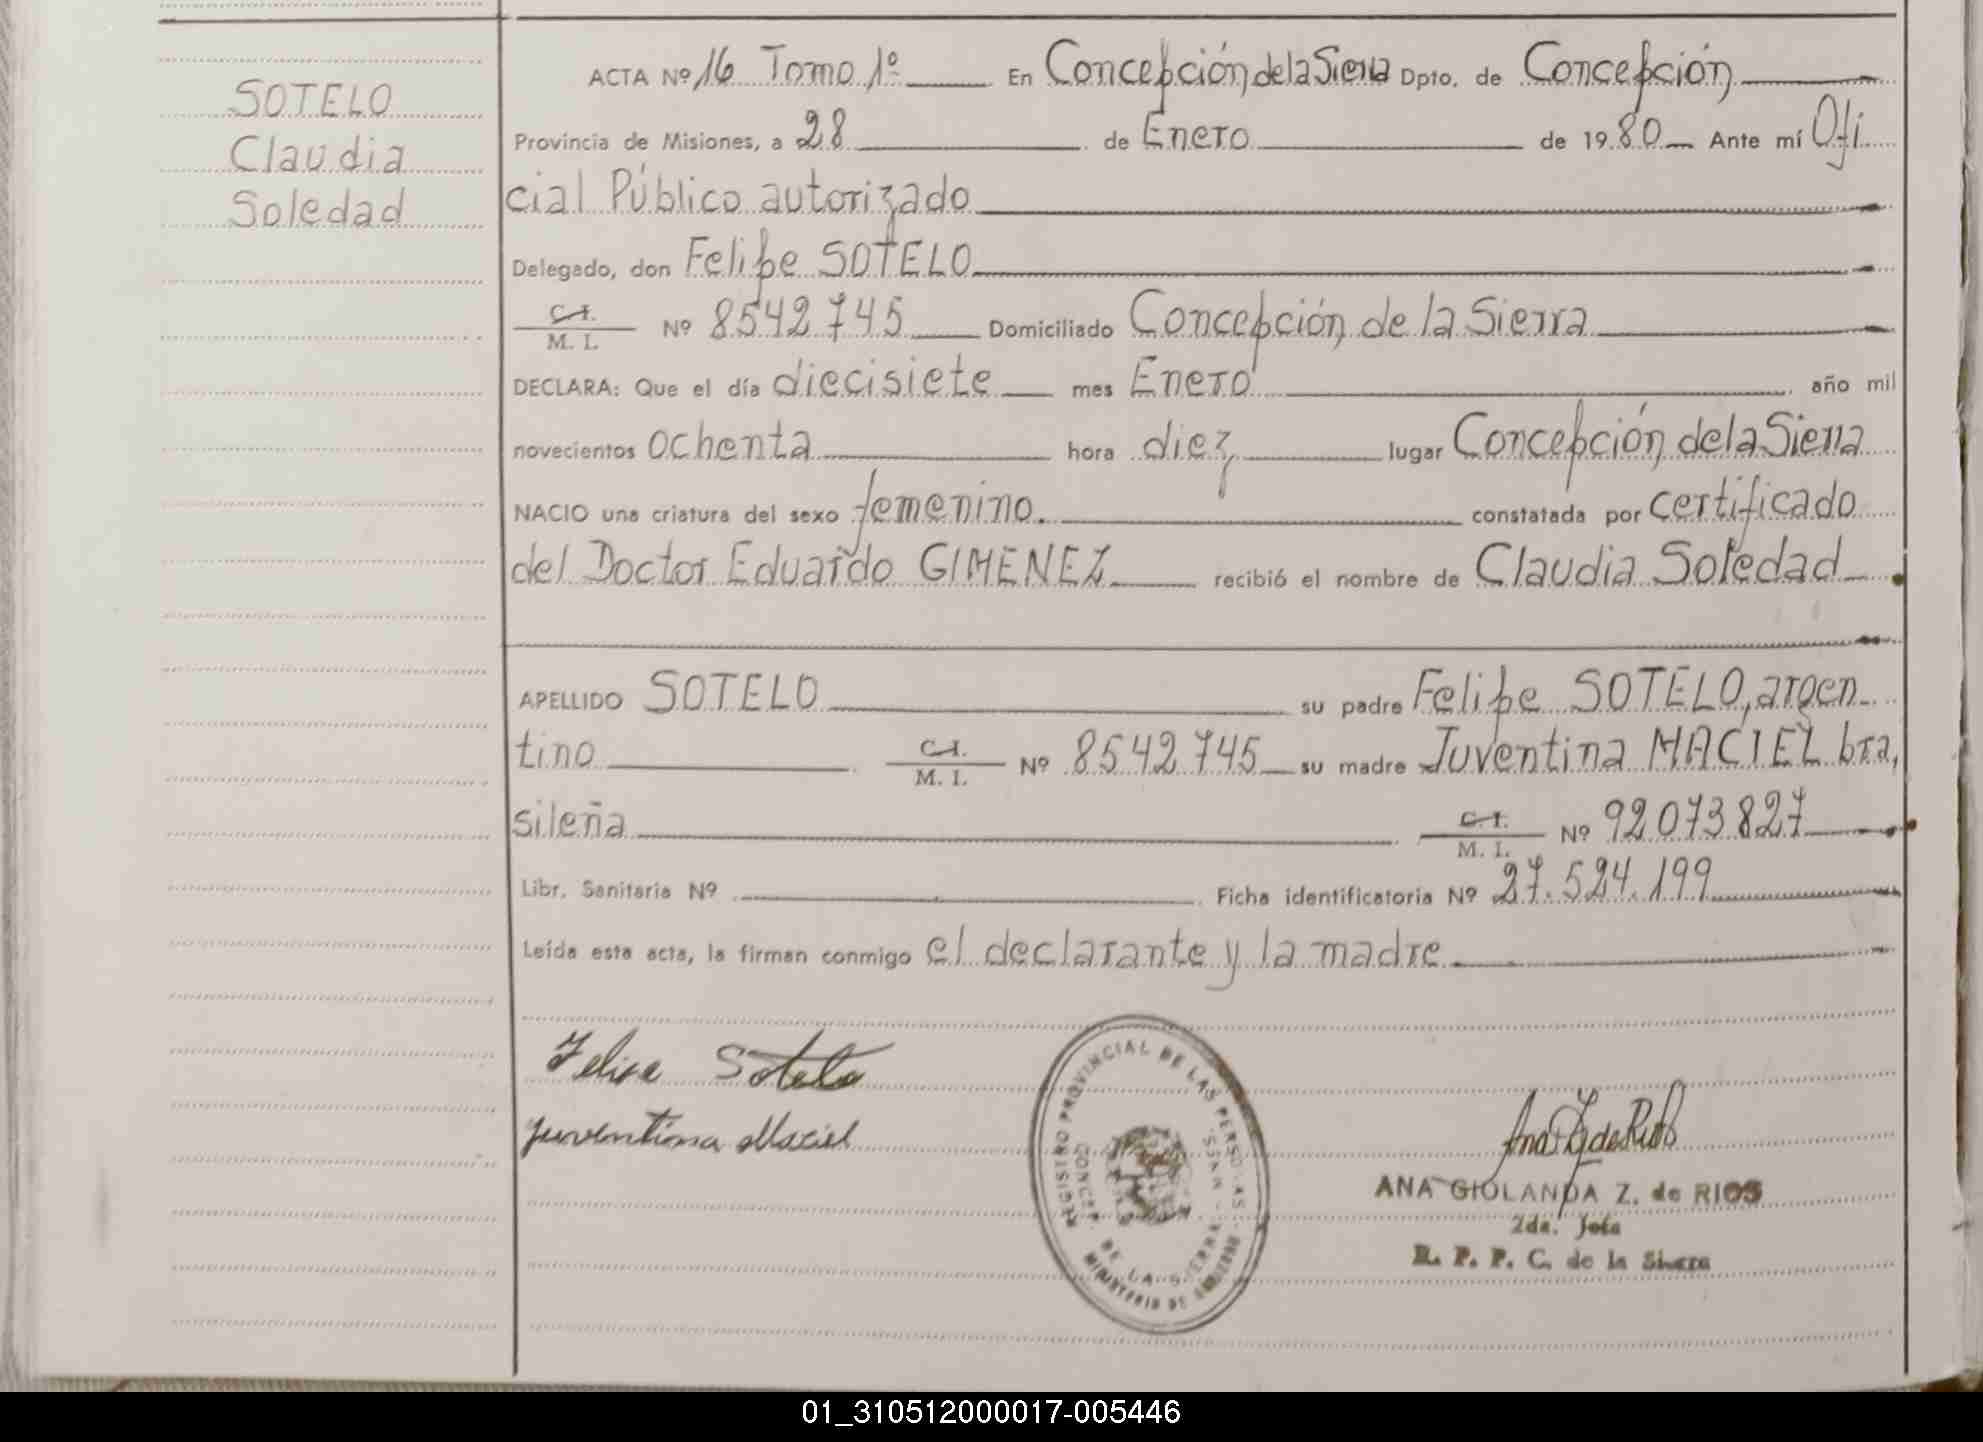 SOTELO
Claudia
Soledad
ACTA Nº 16 Tomo 1º En Concepción de la Sierra Dpto. de Concepción
Provincia de Misiones, a 28 de Enero de 1980 Ante mí Ofi
cial Público autorizado
Delegado, don Felipe SOTELO
C. I.
M. I. Nº 8542745 Domiciliado Concepción de la Sierra
DECLARA: Que el día diecisiete mes Enero año mil
novecientos ochenta hora diez lugar Concepción de la Sierra
NACIO una criatura del sexo femenino. constatada por certificado
del Doctor Eduardo GIMENEZ recibió el nombre de Claudia Soledad
APELLIDO SOTELO su padre Felipe SOTELO, argen
tino C. I. M. I. Nº 8542745 su madre Juventina MACIEL bra,
sileña C. I. M. I. Nº 92073827
Libr. Sanitaria Nº Ficha identificatoria Nº 27.524.199
Leída esta acta, la firman conmigo el declarante y la madre.
Felipe Sotelo
juventina Maciel
REGISTRO PROVINCIAL DE LAS PERSONAS
CONCEP. DE LA SIERRA - MNES.
MINISTERIO DE GOBIERNO
Ana Z de Rios
ANA GIOLANDA Z. de RIOS
2da. Jefa
R. P. P. C. de la Sierra
01_310512000017-005446